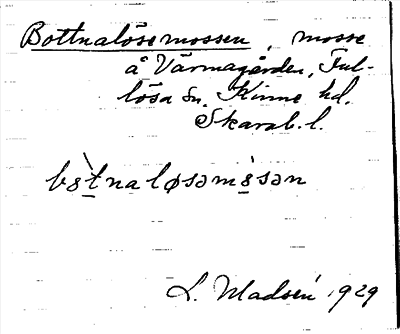 Bottnalösemossen, mosse
å Värmagården, Ful-
lösa sn, Kinne hd.
Skarab. l.
bȣ̀tnaløsəmȣ̀sən
L. Madsén 1929